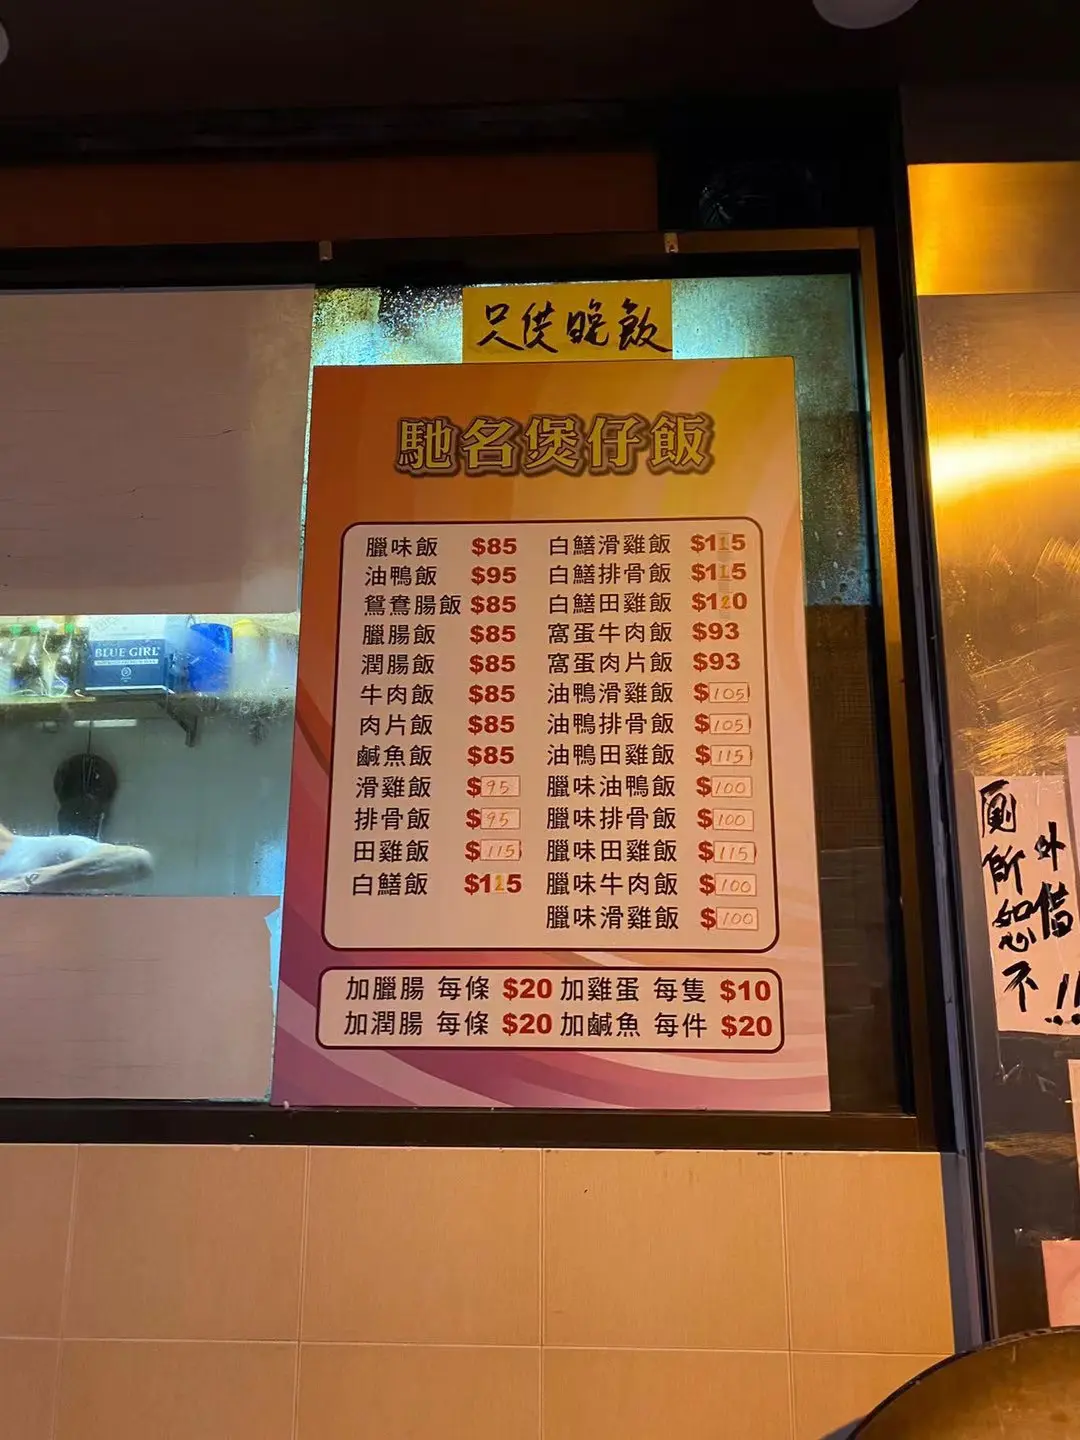 只供晚飯
馳名煲仔飯
臘味飯 $85
油鴨飯 $95
鴛鴦腸飯 $85
臘腸飯 $85
潤腸飯 $85
牛肉飯 $85
肉片飯 $85
鹹魚飯 $85
滑雞飯 $95
排骨飯 $95
田雞飯 $115
白鱔飯 $115
白鱔滑雞飯 $115
白鱔排骨飯 $115
白鱔田雞飯 $120
窩蛋牛肉飯 $93
窩蛋肉片飯 $93
油鴨滑雞飯 $105
油鴨排骨飯 $105
油鴨田雞飯 $115
臘味油鴨飯 $100
臘味排骨飯 $100
臘味田雞飯 $115
臘味牛肉飯 $100
臘味滑雞飯 $100
加臘腸 每條 $20 加雞蛋 每隻 $10
加潤腸 每條 $20 加鹹魚 每件 $20
BLUE GIRL
廁所恕不
外借!!